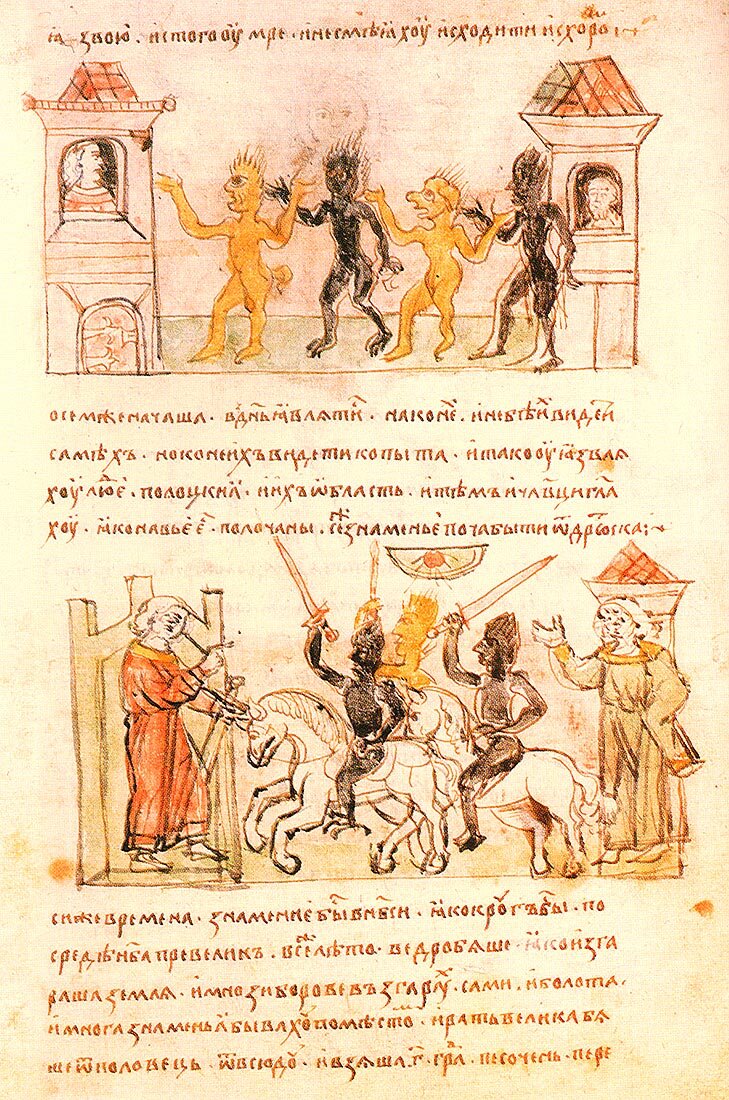 ꙗзвою · и с того оумре · и не смѣꙗхоу исходити исхоро
осемже начаша · в д҃нь ꙗвлѧти · на коне · и не бѣ и видѣти
самѣхъ · но конеи ихъ видети копыта · и тако оуꙗзвлѧ
хоу люⷣе · полоцкиꙗ · и ихъ ѿбласть · и тѣмъ и чл҃вци гл҃а
хоу · ꙗко навье беⷮ · полочаны · се знаменье поча быти ѿ дрьютьска
си же времена · знамение быⷭ в нб҃си · ꙗко кроугъ бы · по
средѣ нб҃а превеликъ · все лѣто ведро бѧше · ꙗко изга
раше землѧ · и мнози борове възгарахⷹ сѧ сами · и болота ·
и многа знаменьꙗ бывахоу по мѣстоⷨ · и рать велика бѧ
ше ѿ половець · ѿвсюдоу · и взѧша · г҃ · граⷣ · песочень · пере